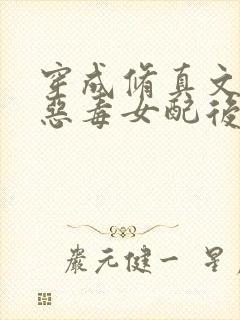 穿成修真文
惡毒女配後
嚴元健一 星